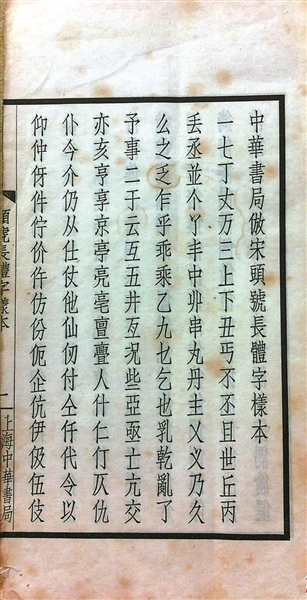 中華書局倣宋頭號長體字樣本
一七丁丈万三上下丑丐不丕且世丘丙
丟丞並个丫丰中丱串丸丹主乂义乃久
么之乏乍乎乖乘乙九乜乞也乳乾亂了
予事二亍云互五井亙况些亞亟亠亢交
亦亥亨享京亭亮亳亶亹人什仁仃仄仇
仆今介仍从仕仗他仙仞付仝仟代令以
仰仲伢件佇价仵仿份伌企伉伊伋伍伎
頭號長體字樣本
二
上海中華書局